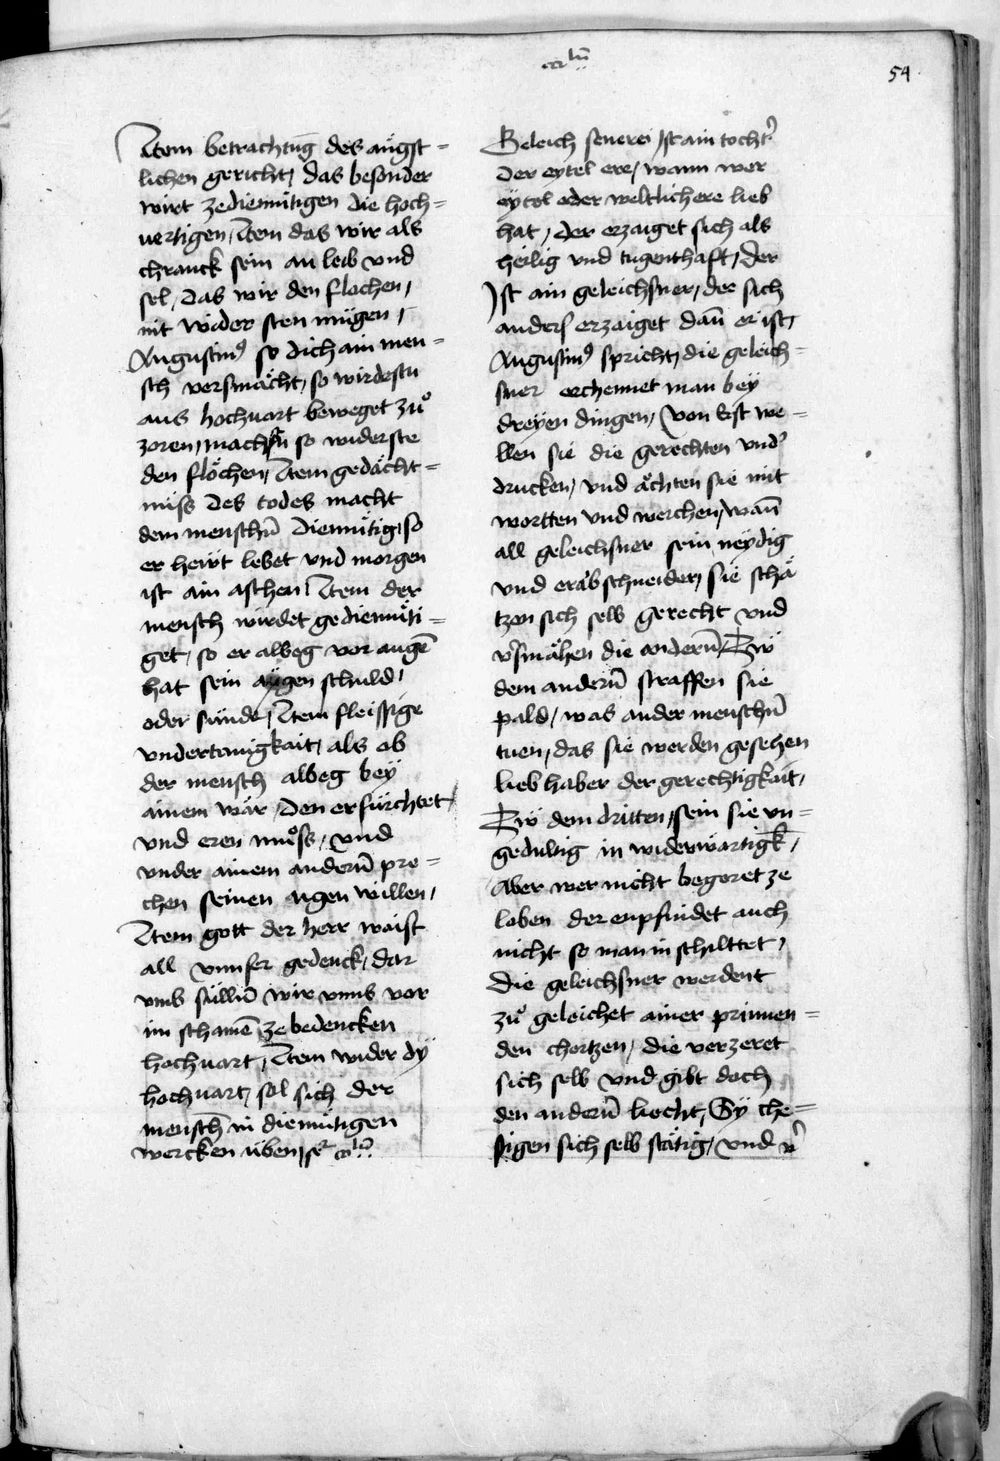 54
Item betrachtūg des angst=
lichen gericht / das besonder
wirt zediemütigen die hoch=
uertigen / Item das wir als
chranck sein an leib vnd
sel / das wir den flochen /
nit wider sten mügen /
Augustin9 so dich ain men=
sch versmächt / so wirdestu
aus hochuart beweget zů
zoren / so widerste
den flöchen / Item gedächt=
nüss des todes macht
dem menschn̄ diemütig / so
er hewt lebet vnd morgen
ist ain aschen / Item der
mensch wirdet gediemüti=
get / so er albeg vor augē
hat sein aygen schuld /
oder sünde / Item fleissige
vndertanigkait / als ob
der mensch albeg bey
ainem wär / den er fürchtet /
vnd eren müss / vnd
vnder ainem andern̄ pre=
chen seinen aigen willen /
Item gott der herr waist
all vnnser gedenck / dar
vmb süllen̄ wir vnns vor
im schamē ze bedencken
hochuart / Item wider dy
hochuart / sol sich der
mensch in diemütigen
wercken üben /
Geleichsenerei / Ist ain tocht'
der eytel ere / wann wer
eytel oder weltlich ere lieb
hat / der erzaiget sich als
heilig vnd tugenthaft / der
Ist ain geleichsner / der sich
anders erzaiget dan̄ er ist /
Augustin9 spricht / die geleich=
sner erchennet man bey
dreyen dingen / Von erst we=
llen sie die gerechten vnd'
drucken / vnd ächten sie mit
wortten vnd werchen / wan̄
all geleichsner sein neydig
vnd erabschneider / sie schä
tzen sich selb gerecht vnd
v'smähen die andern̄ / Zw
dem andern̄ straffen sie
pald / was ander menschn̄
tuen / das sie werden gesehen
liebhaber der gerechtigkait /
Zw dem dritten / sein sie vn=
gedultig in widerwärtigk̄ /
Aber wer nicht begeret ze
loben der enpfindet auch
nicht so man in schilttet /
Die geleichsner werdent
zů geleichet ainer prinnen=
den chertzen / die verzeret
sich selb vnd gibt doch
den andern̄ liecht / Sy che=
stigen sich selb stätig / vnd v'